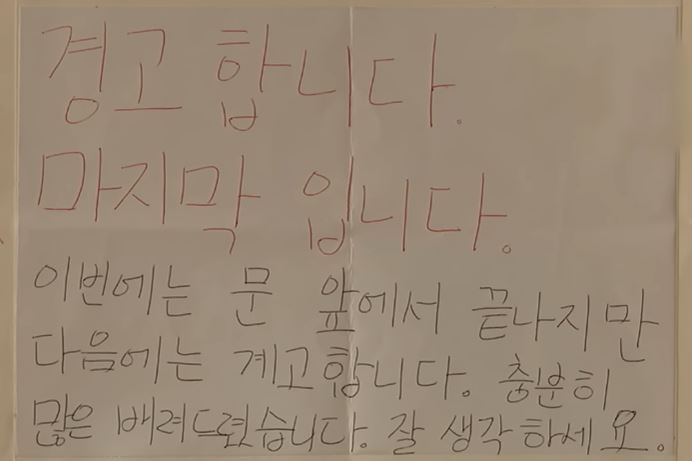 경고 합니다.
마지막 입니다.
이번에는 문 앞에서 끝나지만
다음에는 계고합니다. 충분히
많은 배려드렸습니다. 잘 생각하세요.